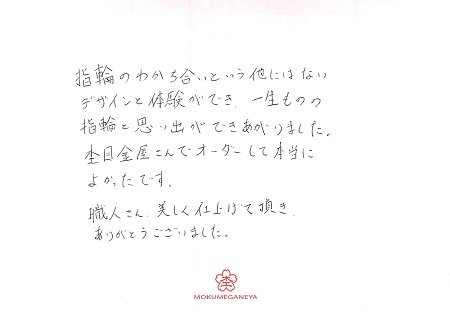 指輪のわかち合いという他にはない
デザインと体験ができ、一生ものの
指輪と思い出ができあがりました。
杢目金屋さんでオーダーして本当に
よかったです。
職人さん、美しく仕上げて頂き、
ありがとうございました。
杢
MOKUMEGANEYA